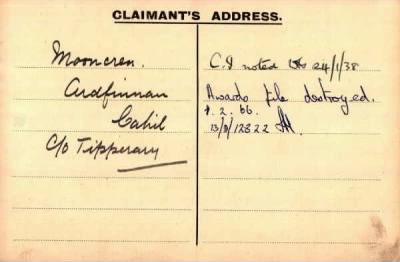 CLAIMANT'S ADDRESS.
Mooncrea.
Ardfinnan
Cahil
C/o Tipperary
C.I noted 24/1/38
Awards file destroyed.
1. 2. 66.
13/8/12822